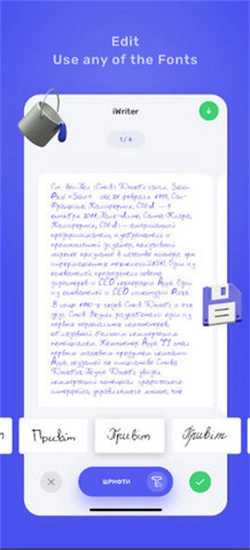 Edit
Use any of the Fonts
iWriter
1 / 4
Франциско, Калифорния, США — 5
октября 2011, Пало-Алто, Санта-Клара,
Калифорния, США) — американский
предприниматель, изобретатель и
промышленный дизайнер, получивший
широкое признание в качестве пионера эры
информационных технологий. Один из
основателей, председатель совета
директоров и CEO корпорации Apple. Один
из основателей и CEO киностудии Pixar.
В конце 1970-х годов Стив Джобс и его
друг Стив Возняк разработали один из
первых персональных компьютеров,
обладавший большим коммерческим
потенциалом. Компьютер Apple II стал
первым массовым продуктом компании
Apple, созданной по инициативе Стива
Джобса. Позже Джобс увидел
коммерческий потенциал графического
интерфейса, управляемого мышью, что
Привіт Привіт Привіт
ШРИФТИ